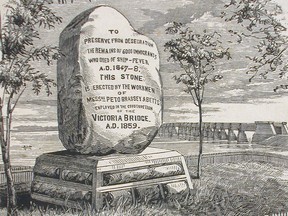 TO
PRESERVE FROM DESECRATION
THE REMAINS OF 6000 IMMIGRANTS
WHO DIED OF SHIP-FEVER
A.D. 1847-8.
THIS STONE
IS ERECTED BY THE WORKMEN
OF
MESSRS. PETO BRASSEY & BETTS
EMPLOYED IN THE CONSTRUCTION
OF THE
VICTORIA BRIDGE.
A.D. 1859.